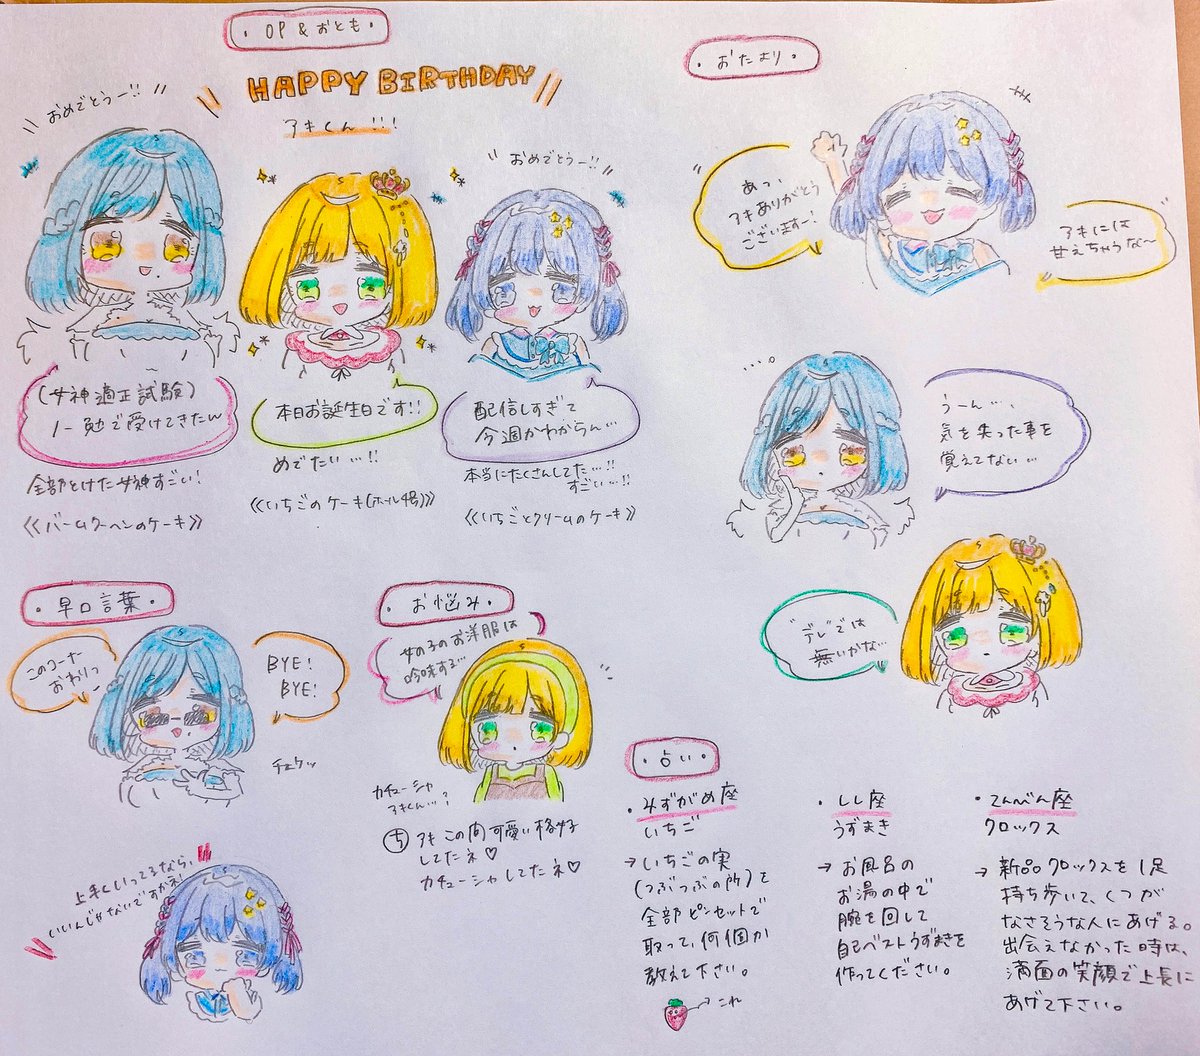 ・OP & おとも・
HAPPY BIRTHDAY
アキくん!!!
おめでとうー!!
おめでとうー!!
(女神適正試験)
ノー勉で受けてきたん
本日お誕生日です!!
配信しすぎて
今週がわからん…
全部とけた女神すごい!
《バームクーヘンのケーキ》
めでたい…!!
《いちごのケーキ(ホール4号)》
本当にたくさんしてた…!!
すごい…!!
《いちごとクリームのケーキ》
・おたより・
あっ、
アキありがとう
ございますー!
アキには
甘えちゃうな〜
うーん…、
気を失った事を
覚えてない…
"デレ"では
無いかな…
・早口言葉・
このコーナー
おわりっ
BYE!
BYE!
チェケッ
上手くいってるなら、
いいんじゃないですかぇ!
・お悩み・
女の子のお洋服は
吟味する…
カチューシャ
アキくん…?
アキこの間可愛い格好
してたネ♡
カチューシャしてたネ♡
・占い・
・みずがめ座
いちご
→いちごの実
(つぶつぶの所)を
全部ピンセットで
取って、何個か
教えて下さい。
→これ
・しし座
うずまき
→お風呂の
お湯の中で
腕を回して
自己ベストうずまきを
作ってください。
・てんびん座
クロックス
→新品クロックスを1足
持ち歩いて、くつが
なさそうな人にあげる。
出会えなかった時は、
満面の笑顔で上長に
あげて下さい。